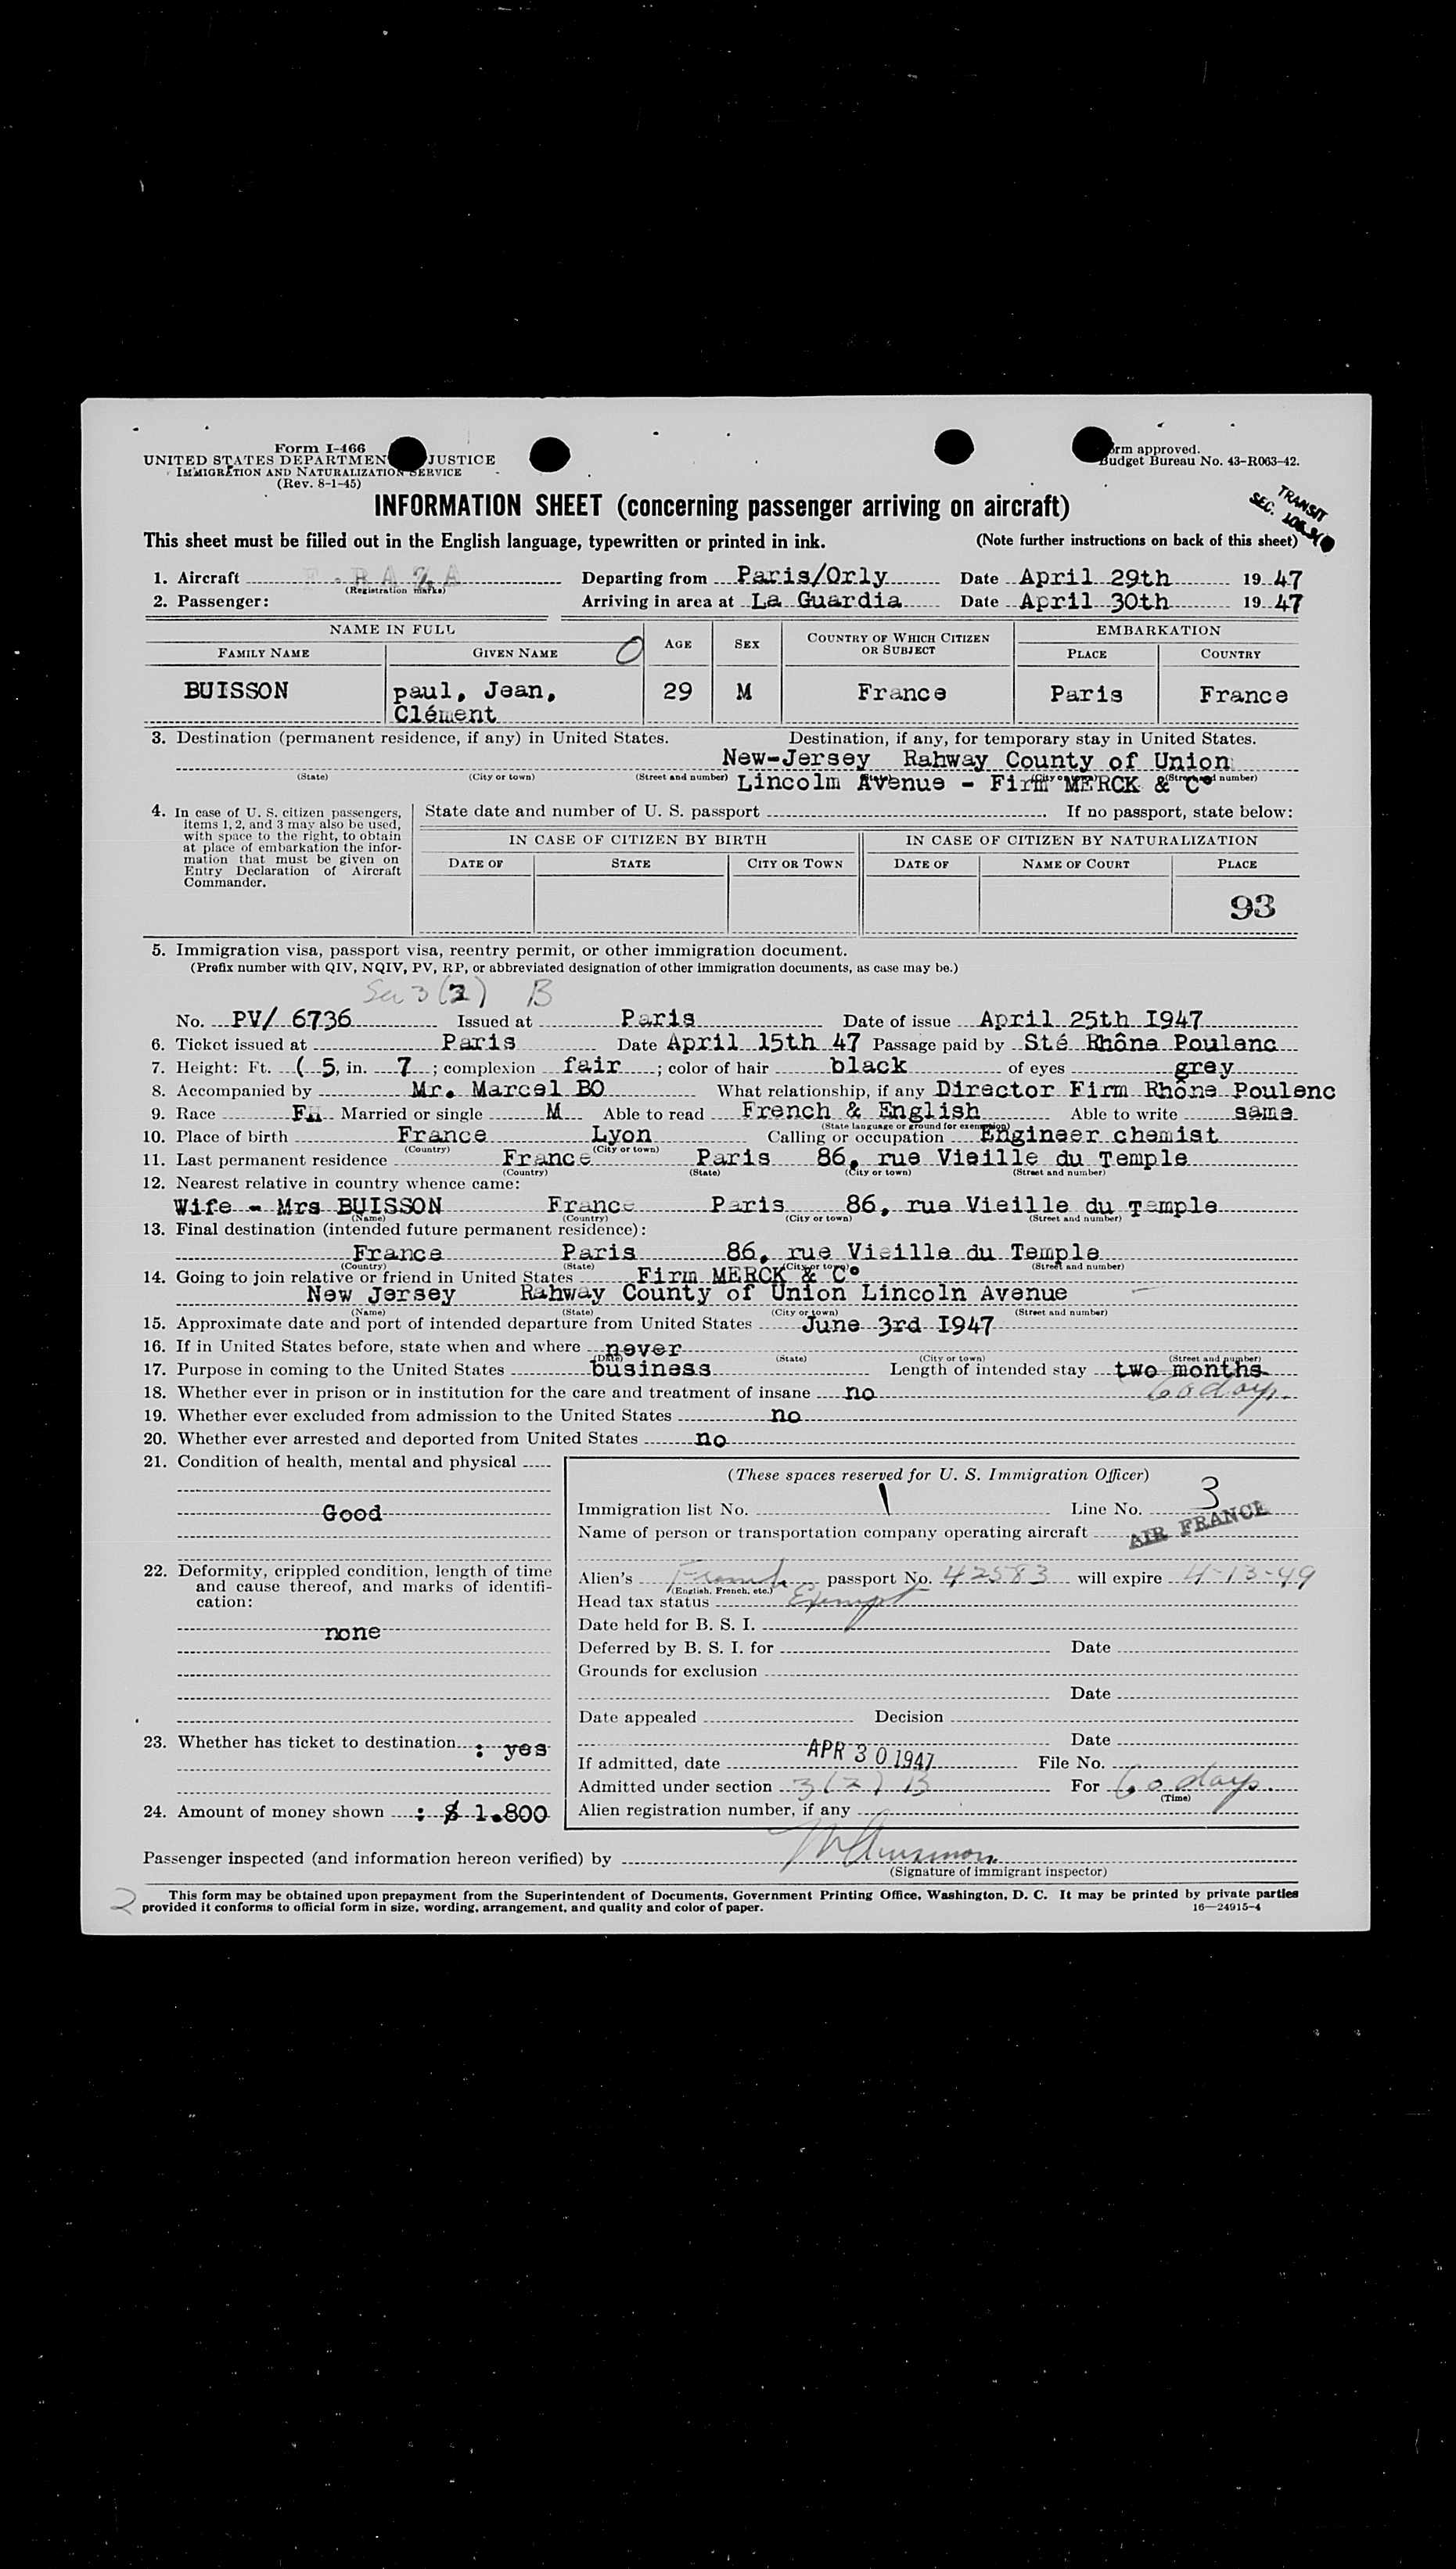 Form I-466
UNITED STATES DEPARTMEN JUSTICE
IMMIGRATION AND NATURALIZATION SERVICE
(Rev. 8-1-45)
orm approved.
Budget Bureau No. 43-R063-42.
INFORMATION SHEET (concerning passenger arriving on aircraft)
TRANSIT
SEC.
This sheet must be filled out in the English language, typewritten or printed in ink. (Note further instructions on back of this sheet)
1. Aircraft Departing from Paris/Orly Date April 29th 19 47
(Registration marks)
2. Passenger: Arriving in area at La Guardia Date April 30th 19 47
NAME IN FULL AGE SEX COUNTRY OF WHICH CITIZEN OR SUBJECT EMBARKATION
FAMILY NAME GIVEN NAME PLACE COUNTRY
BUISSON paul, Jean, 29 M France Paris France
Clément
3. Destination (permanent residence, if any) in United States. Destination, if any, for temporary stay in United States.
New-Jersey Rahway County of Union
(State) (City or town) (Street and number) (State) (City or town) (Street and number)
Lincolm Avenue - Firm MERCK & C°
4. In case of U. S. citizen passengers, items 1, 2, and 3 may also be used, with space to the right, to obtain at place of embarkation the information that must be given on Entry Declaration of Aircraft Commander.
State date and number of U. S. passport If no passport, state below:
IN CASE OF CITIZEN BY BIRTH IN CASE OF CITIZEN BY NATURALIZATION
DATE OF STATE CITY OR TOWN DATE OF NAME OF COURT PLACE
93
5. Immigration visa, passport visa, reentry permit, or other immigration document.
(Prefix number with QIV, NQIV, PV, RP, or abbreviated designation of other immigration documents, as case may be.)
3(2) B
No. PV/ 6736 Issued at Paris Date of issue April 25th I947
6. Ticket issued at Paris Date April 15th 47 Passage paid by Sté Rhône Poulenc
7. Height: Ft. ( 5, in. 7 ; complexion fair ; color of hair black of eyes grey
8. Accompanied by Mr. Marcel BO What relationship, if any Director Firm Rhône Poulenc
9. Race Married or single M Able to read French & English Able to write same
(State language or ground for exemption)
10. Place of birth France Lyon Calling or occupation Engineer chemist
(Country) (City or town)
11. Last permanent residence France Paris 86, rue Vieille du Temple
(Country) (State) (City or town) (Street and number)
12. Nearest relative in country whence came:
Wife - Mrs BUISSON France Paris 86, rue Vieille du Temple
(Name) (Country) (City or town) (Street and number)
13. Final destination (intended future permanent residence):
France Paris 86, rue Vieille du Temple
(Country) (State) (City or town) (Street and number)
14. Going to join relative or friend in United States Firm MERCK & C°
New Jersey Rahway County of Union Lincoln Avenue
(Name) (State) (City or town) (Street and number)
15. Approximate date and port of intended departure from United States June 3rd I947
16. If in United States before, state when and where never
(Date) (State) (City or town) (Street and number)
17. Purpose in coming to the United States business Length of intended stay two months
18. Whether ever in prison or in institution for the care and treatment of insane no 60 days.
19. Whether ever excluded from admission to the United States no
20. Whether ever arrested and deported from United States no
21. Condition of health, mental and physical
Good
22. Deformity, crippled condition, length of time and cause thereof, and marks of identification:
none
23. Whether has ticket to destination : yes
24. Amount of money shown : $ 1.800
(These spaces reserved for U. S. Immigration Officer)
Immigration list No. 1 Line No. 3
Name of person or transportation company operating aircraft AIR FRANCE
Alien's French passport No. 42583 will expire 4-13-49
(English, French, etc.)
Head tax status Exempt
Date held for B. S. I.
Deferred by B. S. I. for Date
Grounds for exclusion
Date
Date appealed Decision
Date
If admitted, date APR 30 1947 File No.
Admitted under section 3(2) B For 60 days.
(Time)
Alien registration number, if any
Passenger inspected (and information hereon verified) by
(Signature of immigrant inspector)
2
This form may be obtained upon prepayment from the Superintendent of Documents, Government Printing Office, Washington, D. C. It may be printed by private parties
provided it conforms to official form in size, wording, arrangement, and quality and color of paper. 16—24915-4